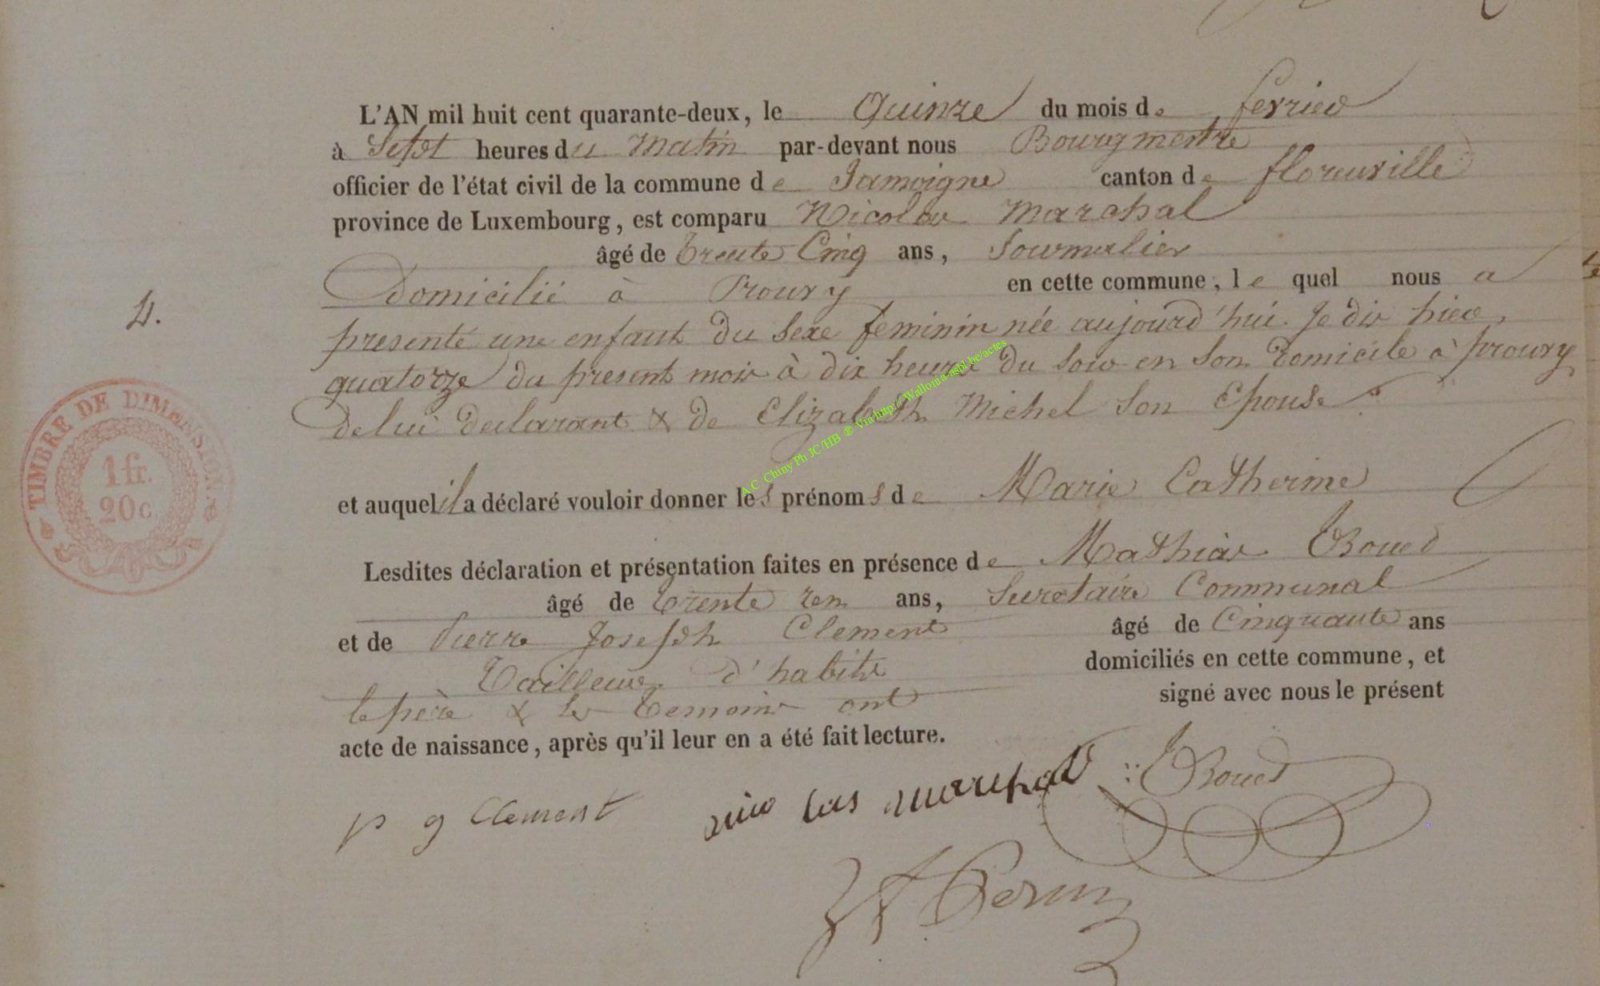 L'AN mil huit cent quarante-deux, le Quinze du mois de fevrier
à Sept heures du Matin par-devant nous Bourgmestre
officier de l'état civil de la commune de Jamoigne canton de florenville
province de Luxembourg, est comparu Nicolas Marchal
âgé de trente Cinq ans, Journalier
Domicilié à Prouvy en cette commune, le quel nous a
4.
presenté une enfant du sexe feminin née aujourd'hui Je dis hier,
quatorze du present mois à dix heures du soir en son domicile à prouvy
de lui declarant & de Elizabeth Michel son Epouse.
et auquel il a déclaré vouloir donner les prénoms de Marie Catherine
TIMBRE DE DIMENSION.
1 fr.
20 c.
Lesdites déclaration et présentation faites en présence de Mathias
âgé de trente ans, Secretaire Communal
et de Pierre Joseph Clement âgé de Cinquante ans
Tailleur d'habits domiciliés en cette commune, et
le père & les temoins ont signé avec nous le présent
acte de naissance, après qu'il leur en a été fait lecture.
p g Clement nico las marchal
A.C. Chiny Ph JC/HB ®